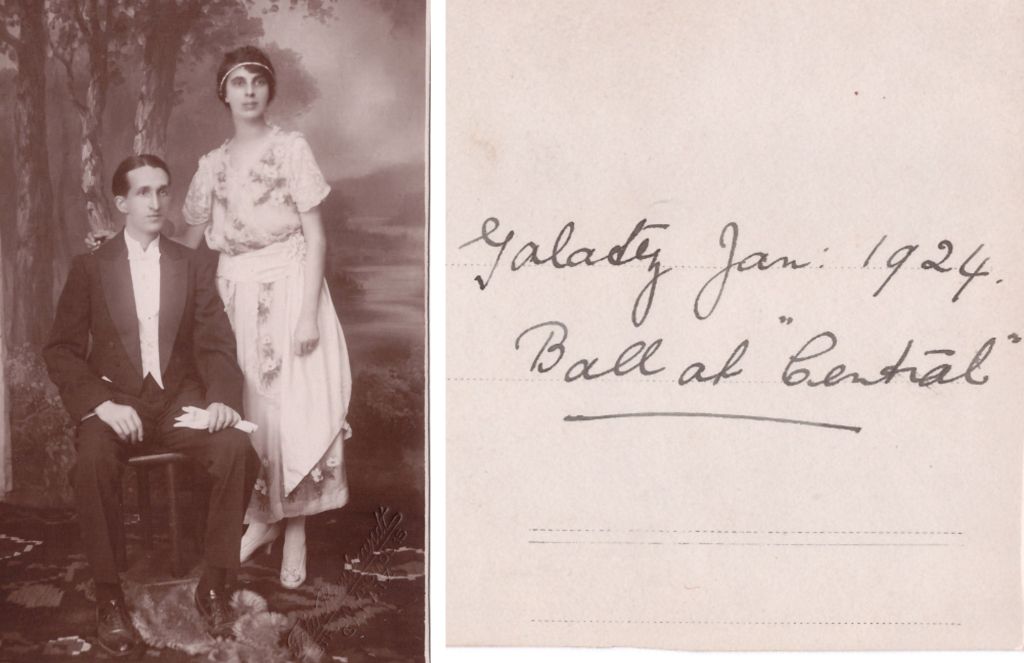 Galatz Jan: 1924.
Ball at "Central"